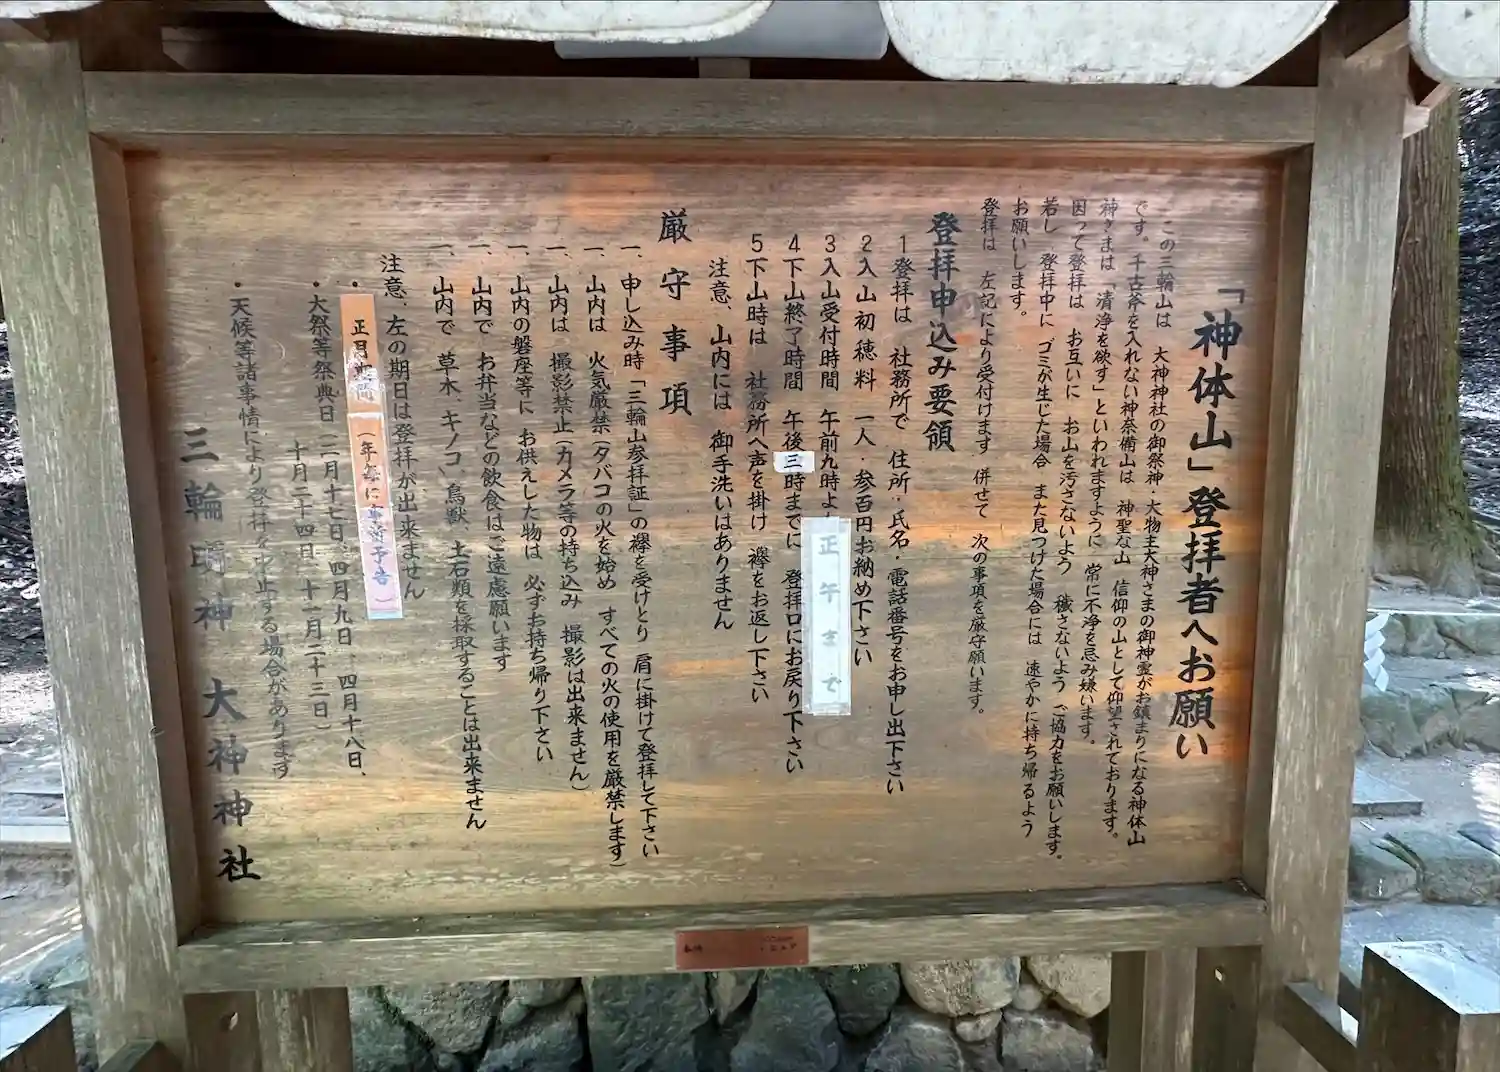 「神体山」登拝者へお願い
この三輪山は 大神神社の御祭神・大物主大神さまの御神霊がお鎮まりになる神体山
です。千古斧を入れない神奈備山は 神聖な山 信仰の山として仰望されております。
神さまは「清浄を欲す」といわれますように 常に不浄を忌み嫌います。
因って登拝は お互いに お山を汚さないよう 穢さないよう ご協力をお願いします。
若し 登拝中に ゴミが生じた場合 また見つけた場合には 速やかに持ち帰るよう
お願いします。
登拝は 左記により受付けます 併せて 次の事項を厳守願います。
登拝申込み要領
1 登拝は 社務所で 住所・氏名・電話番号をお申し出下さい
2 入山初穂料 一人・参百円お納め下さい
3 入山受付時間 午前九時より 正午まで
4 下山終了時間 午後三時までに 登拝口にお戻り下さい
5 下山時は 社務所へ声を掛け 襷をお返し下さい
注意、山内には 御手洗いはありません
厳守事項
一、申し込み時「三輪山参拝証」の襷を受けとり 肩に掛けて登拝して下さい
一、山内は 火気厳禁(タバコの火を始め すべての火の使用を厳禁します)
一、山内は 撮影禁止(カメラ等の持ち込み 撮影は出来ません)
一、山内の磐座等に お供えした物は 必ずお持ち帰り下さい
一、山内で お弁当などの飲食はご遠慮願います
一、山内で 草木、キノコ、鳥獣、土石類を採取することは出来ません
注意、左の期日は登拝が出来ません
・正月期間(年毎に事前予告)
・大祭等祭典日(二月十七日、四月九日、四月十八日、
十月二十四日、十一月二十三日)
・天候等諸事情により登拝を中止する場合があります
三輪明神 大神神社